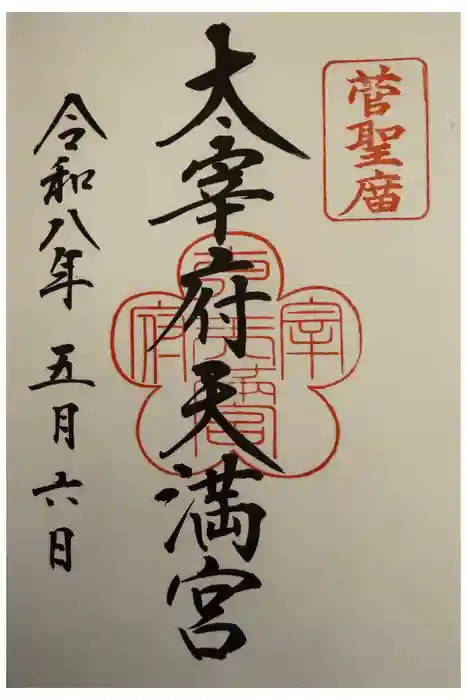 菅聖庿
太宰府天満宮
令和八年 五月六日